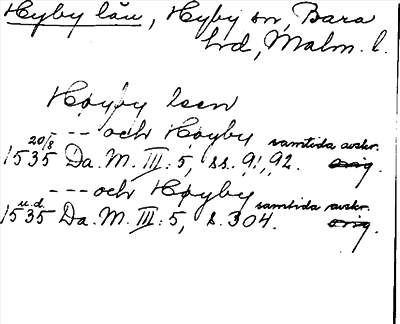 Hyby län, Hyby sn, Bara
hd, Malm. l.
Høyby lsen
--- och Høyby samtida avskr.
20/8 1535 Da. M. III: 5, ss. 91, 92. orig.
--- och Høyby samtida avskr.
u.d. 1535 Da. M. III: 5, s. 304. orig.